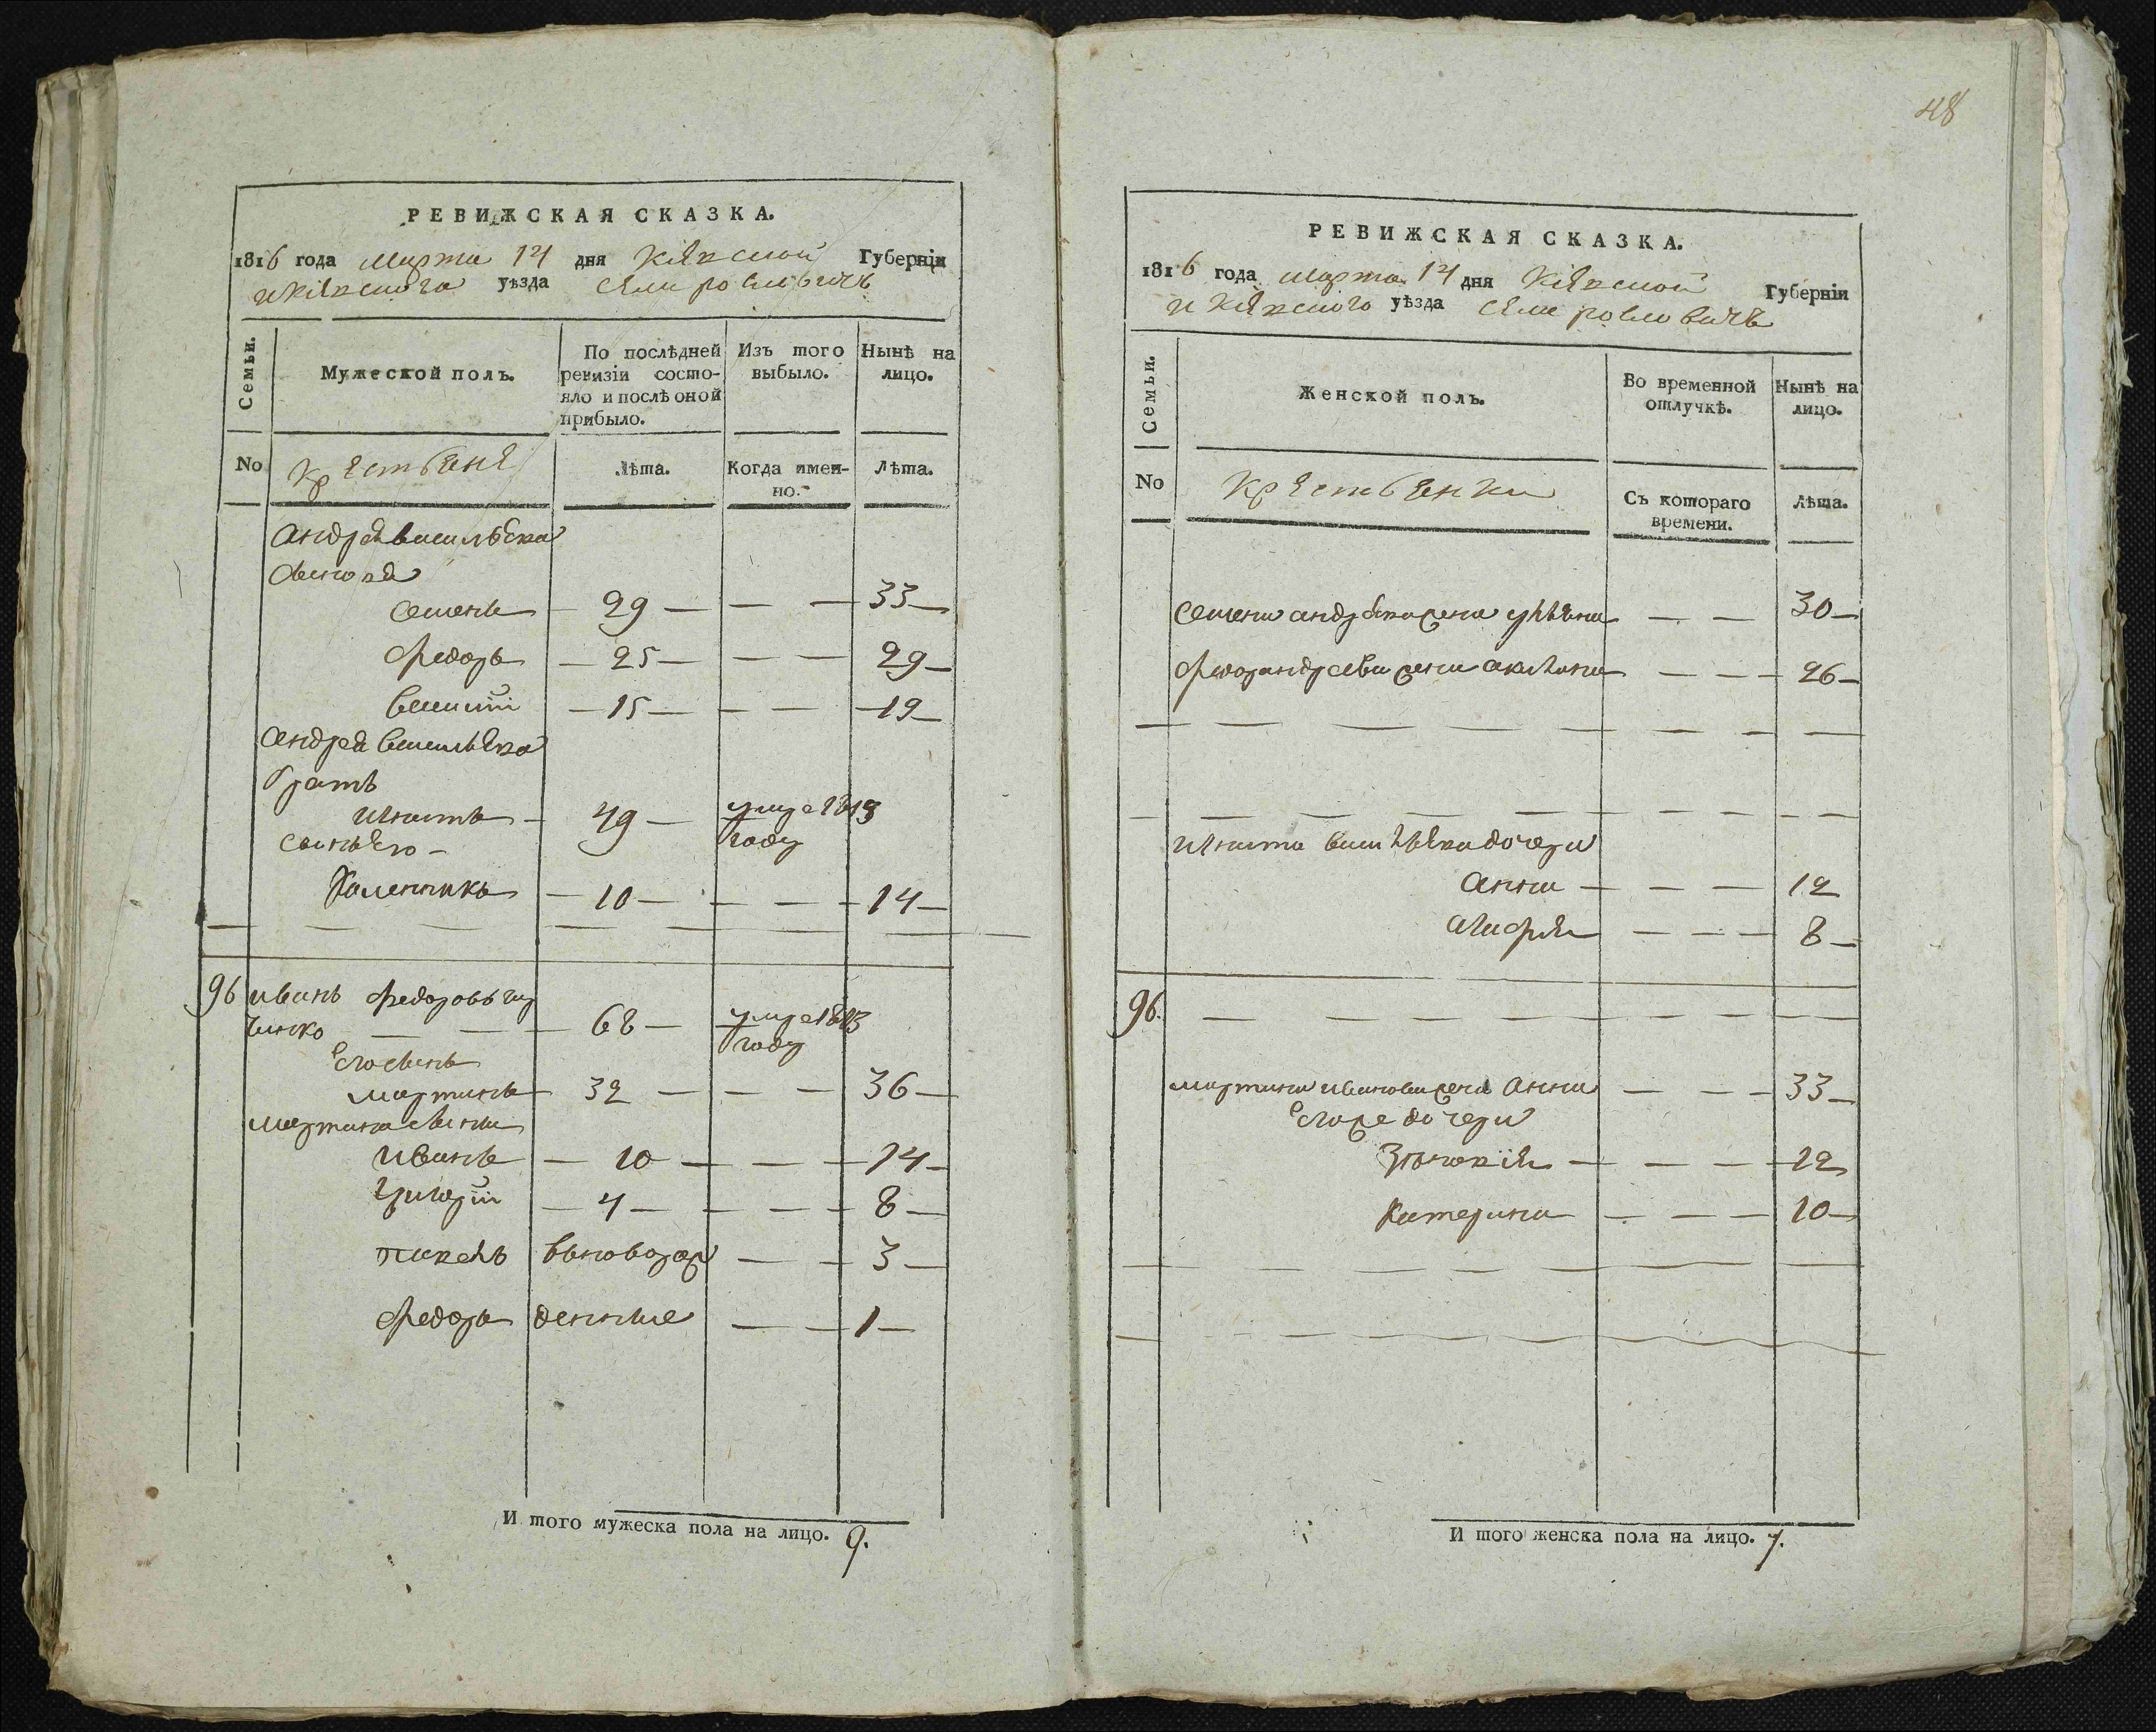 48
РЕВИЖСКАЯ СКАЗКА.
1816 года марта 14 дня Кіевской Губерніи
и Кіевского уѣзда села
Семьи.
Мужеской полъ.
По послѣдней ревизіи состо-
яло и послѣ оной
прибыло.
Изъ того выбыло.
Нынѣ на лицо.
No
Крестьяне
Лѣта.
Когда имен-
но.
Лѣта.
Андрея Васильева
сыновя
Семенъ — 29 — — — 33 —
Федоръ — 25 — — — 29 —
Василій — 15 — — — 19 —
Андрея Васильева
братъ
Игнатъ — 49 — умре 1813
году
сынъ Его —
— 10 — — — 14 —
96 Иванъ Федоровъ
— 68 — умре 1813
году
Его сынъ
Мартинъ 32 — — — 36 —
Мартина сыны
Иванъ — 10 — — — 14 —
Григорій — 4 — — — 8 —
вноворож — — 3 —
Федоръ денные — — 1 —
И того мужеска пола на лицо. 9.
РЕВИЖСКАЯ СКАЗКА.
1816 года марта 14 дня Кіевской Губерніи
и Кіевского уѣзда села
Семьи.
Женской полъ.
Во временной
отлучкѣ.
Нынѣ на
лицо.
No
Крестьянки
Съ котораго
времени.
Лѣта.
Семена Андреева жена Уляна — — 30 —
жена Акилина — — — 26 —
Игната Васильева дочери
Анна — — — 12
— — — 8 —
96.
Мартина Иванова жена Анна — — — 33 —
Егоже дочери
— — — 12
Катерина — — — 10 —
И того женска пола на лицо. 7.